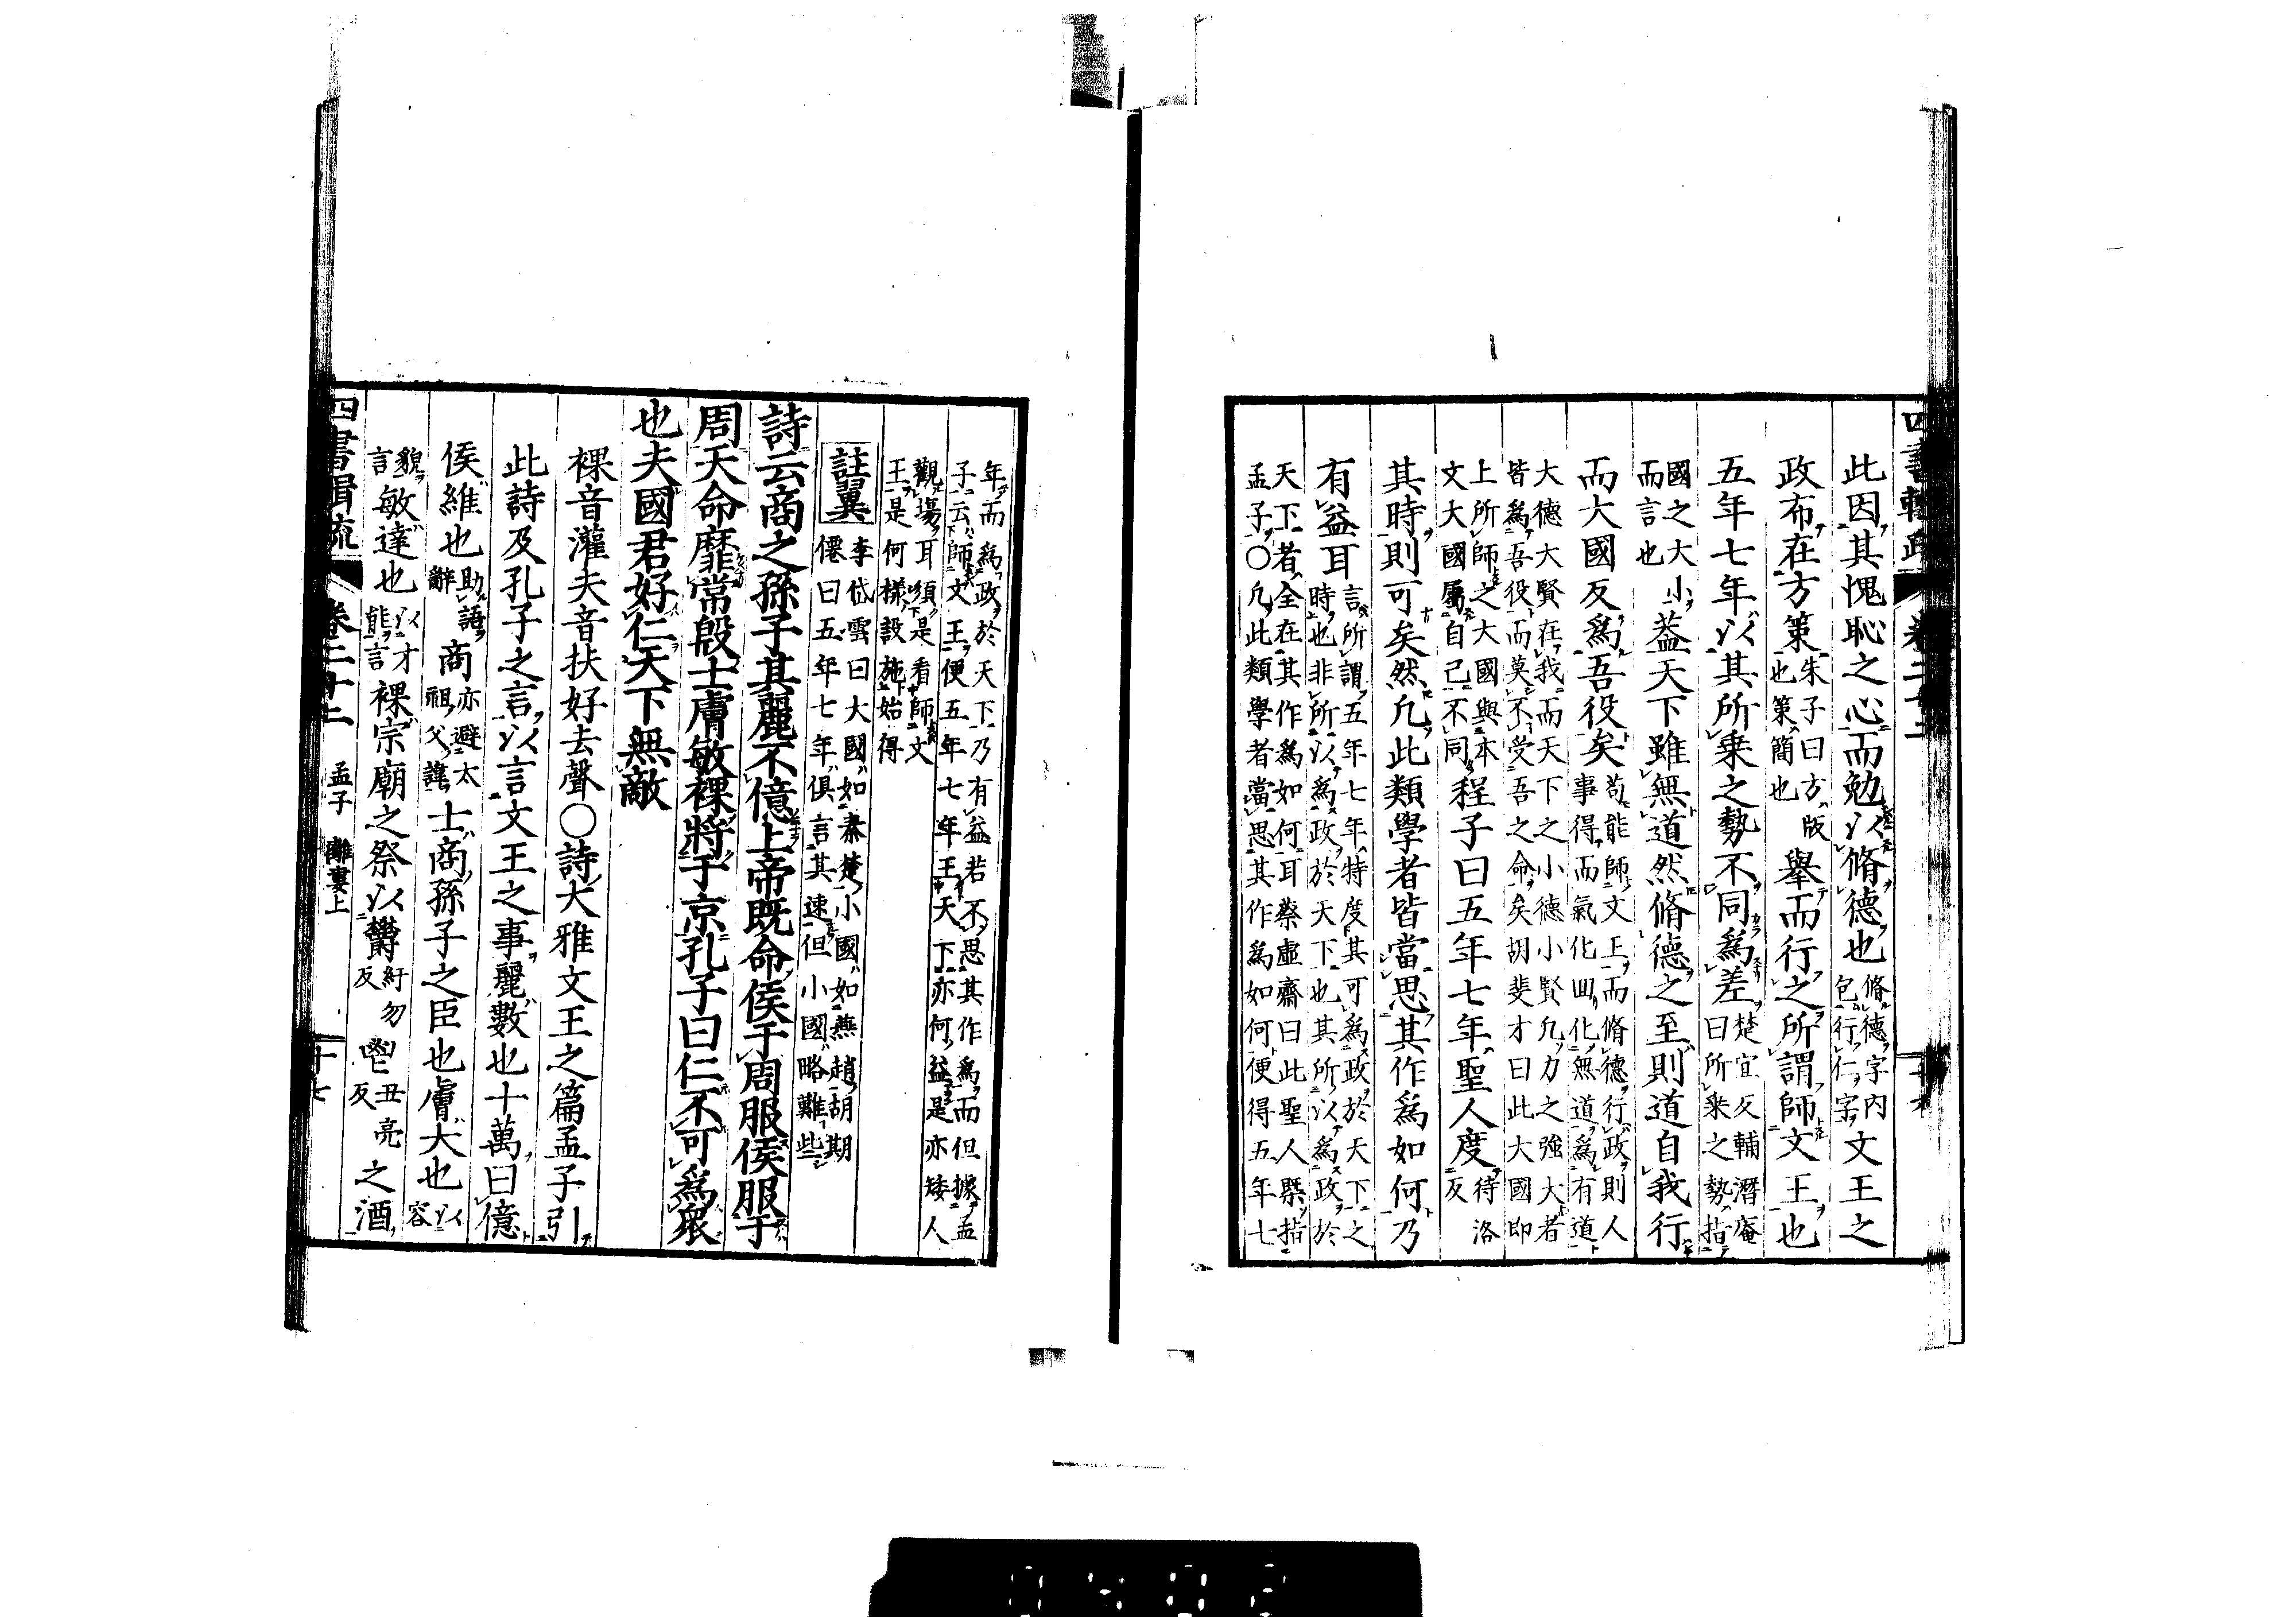 四書輯疏 卷二十二
此因其愧恥之心而勉以脩德也脩德字內包行仁字文王之
政布在方策朱子曰方版也策簡也擧而行之所謂師文王也
五年七年以其所乗之勢不同爲差楚宜又輔潛庵曰所乗之勢指
國之大小而言也葢天下雖無道然脩德之至則道自我行
而大國反爲吾役矣苟能師文王而脩德行政則人事得而氣化囬化無道爲有道
大德大賢在我而天下之小德小賢凡力之強大者皆爲吾役而莫不受吾之命矣胡斐才曰此大國即
上所師之大國與本文大國屬自己不同程子曰五年七年聖人度待洛反
其時則可矣然凡此類學者皆當思其作爲如何乃
有益耳言所謂五年七年特度其可爲政於天下之時也非所以爲政於天下也其所以爲政於
天下者全在其作爲如何耳蔡虛齋曰此聖人槩指孟子○凡此類學者當思其作爲如何便得五年七
年而爲政於天下乃有益若不思其作爲而但據孟子云師文王便五年七年王天下亦何益是亦矮人
觀塲耳須是看師文王是何樣設施始得
註翼李岱雲曰大國如秦楚小國如燕趙胡期僊曰五年七年俱言其速但小國略難些
詩云商之孫子其麗不億上帝既命侯于周服侯服于
周天命靡常殷士膚敏祼將于京孔子曰仁不可爲衆
也夫國君好仁天下無敵
祼音灌夫音扶好去聲○詩大雅文王之篇孟子引
此詩及孔子之言以言文王之事麗數也十萬曰億
侯維也助語辭商亦避太祖父諱士商孫子之臣也膚大也以容
貌言敏達也以才能言祼宗廟之祭以鬱紆勿反鬯丑亮反之酒
四書輯疏 卷二十二 孟子 離婁上 十七